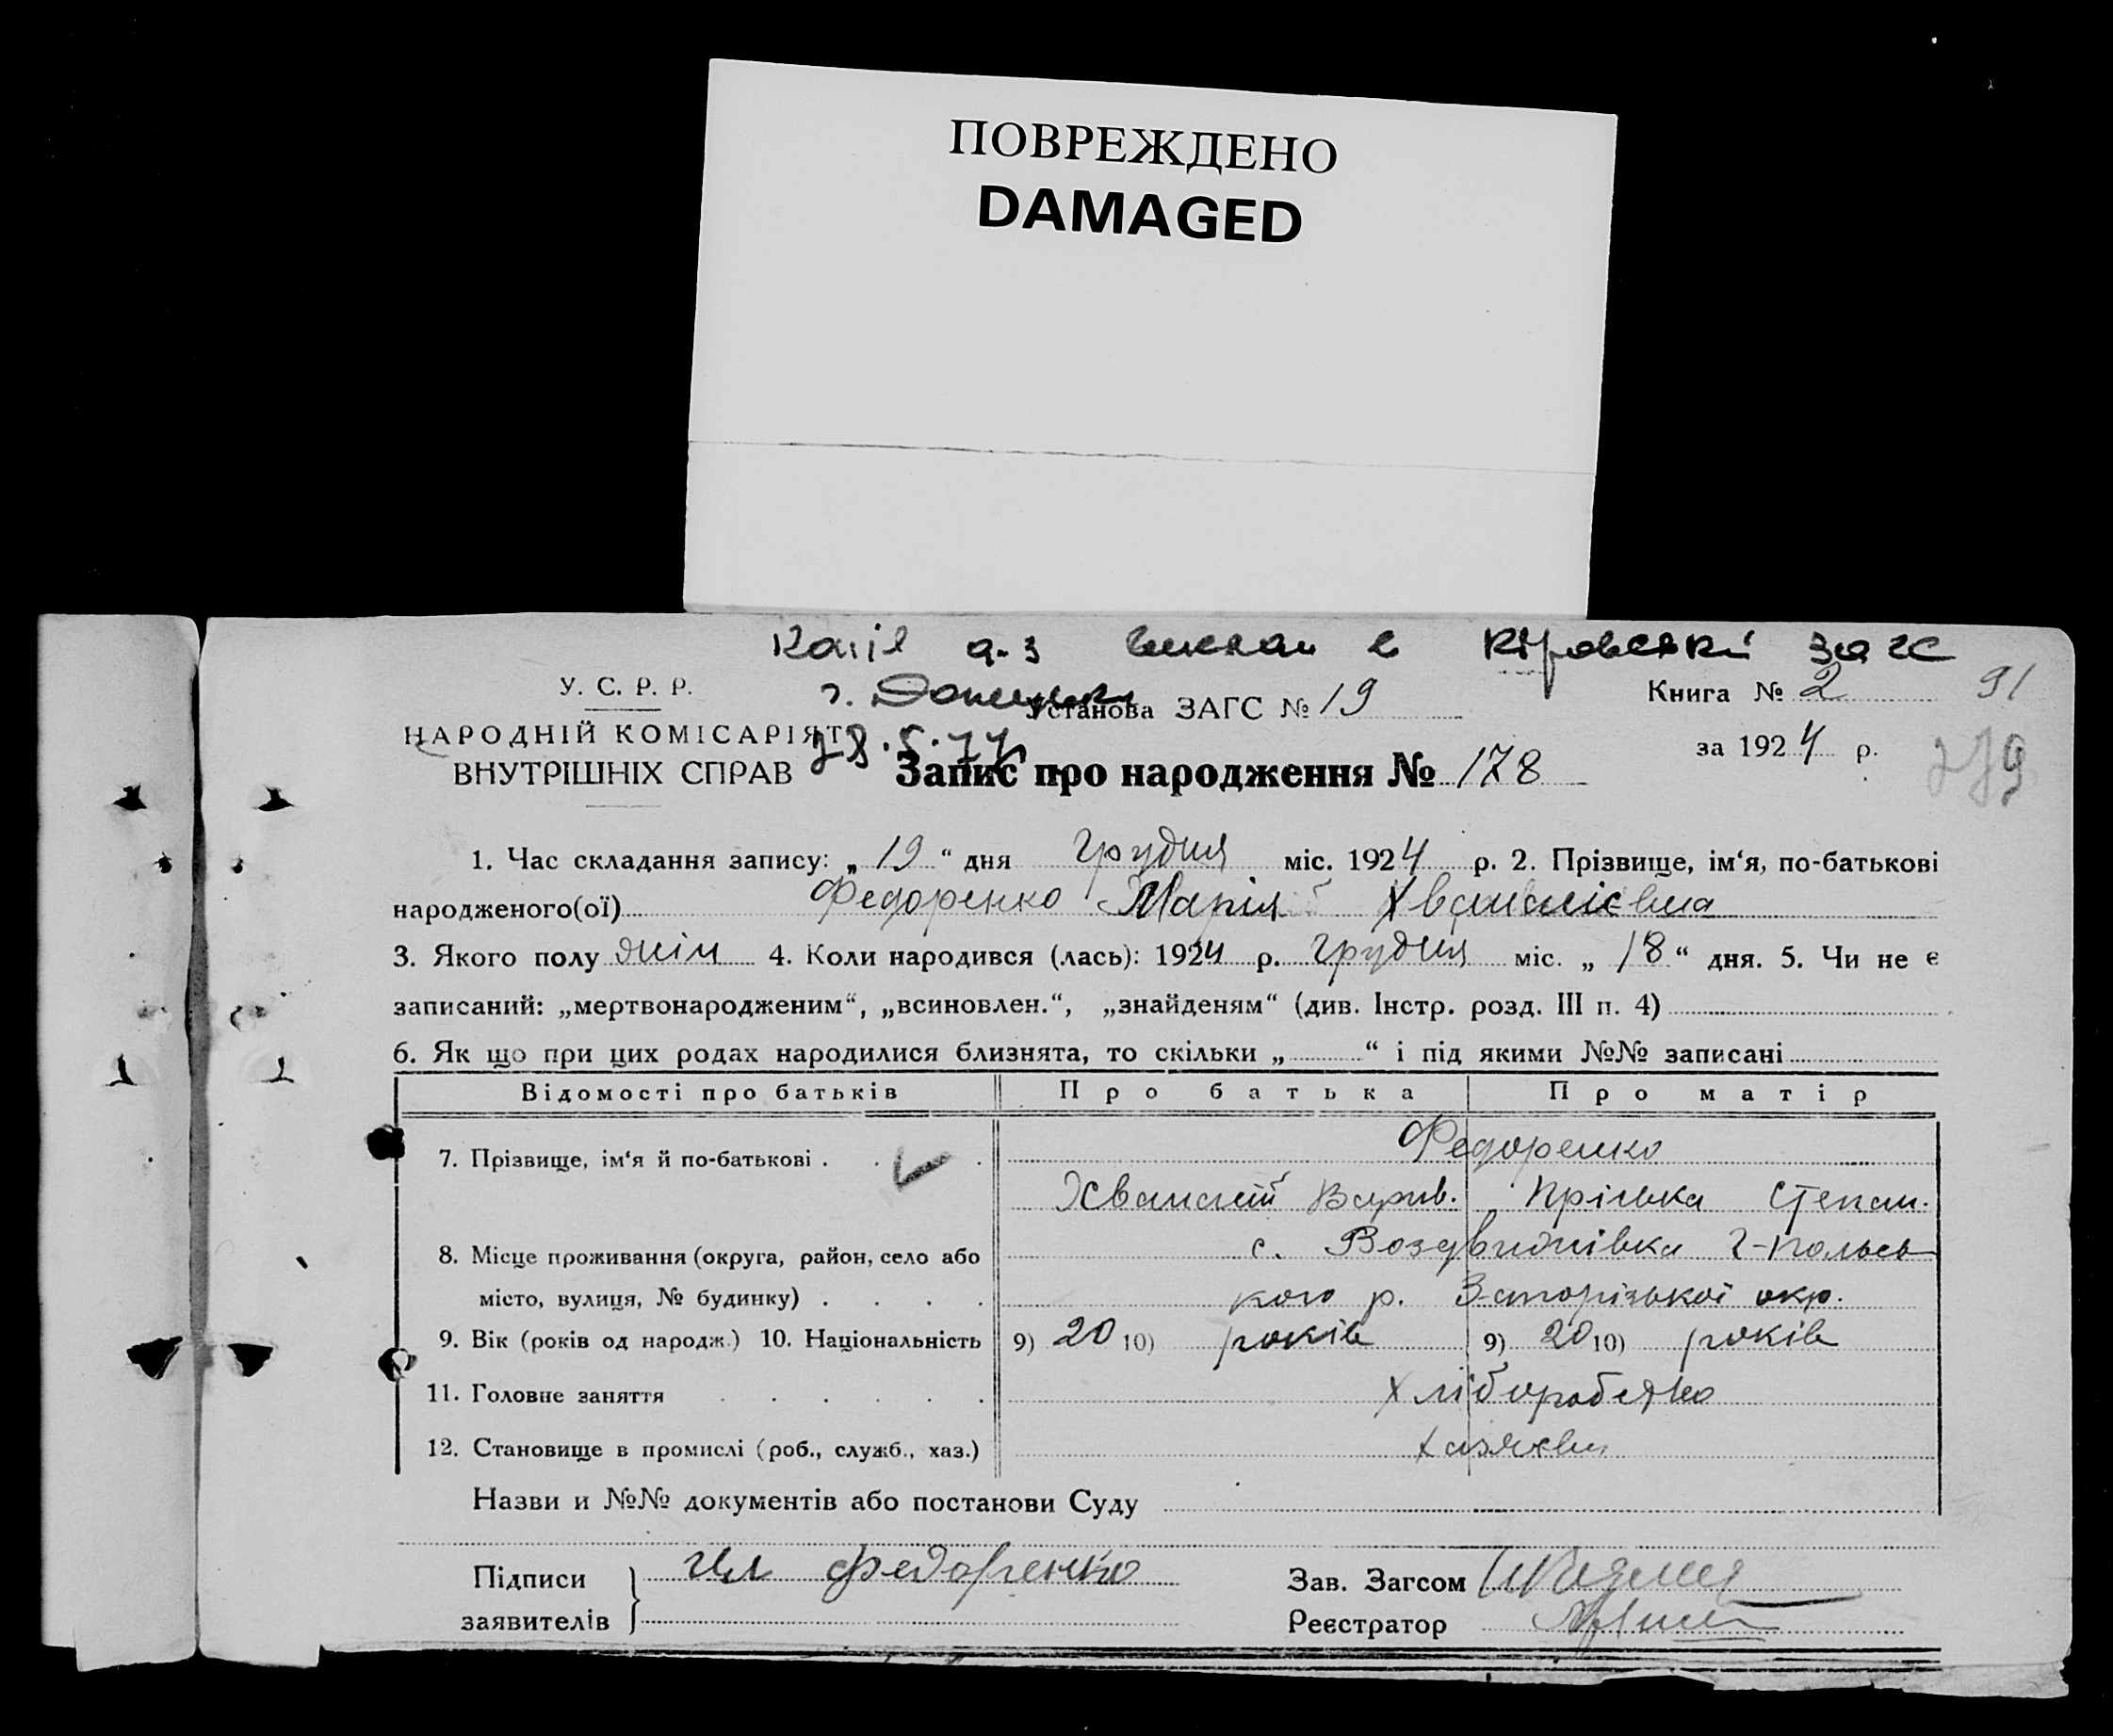 ПОВРЕЖДЕНО
DAMAGED
Копія а-з вислан в Кіровський ЗАГС
г. Донецьк
28.5.77
У. С. Р. Р.
НАРОДНІЙ КОМІСАРІЯТ
ВНУТРІШНІХ СПРАВ
Установа ЗАГС № 19
Книга № 2
91
за 1924 р.
279
Запис про народження № 178
1. Час складання запису: „ 19 “ дня грудня міс. 1924 р. 2. Прізвище, ім‘я, по-батькові
народженого(ої) Федоренко Марія Хванасієвна
3. Якого полу жін 4. Коли народився (лась): 1924 р. грудня міс. „ 18 “ дня. 5. Чи не є
записаний: „мертвонародженим“, „всиновлен.“, „знайденям“ (див. Інстр. розд. III п. 4)
6. Як що при цих родах народилися близнята, то скільки „ “ і під якими №№ записані
Відомості про батьків Про батька Про матір
7. Прізвище, ім‘я й по-батькові . . . Федоренко
Хванасій Прiська Степан.
8. Місце проживання (округа, район, село або с. Воздвижнівка г-польсь
місто, вулиця, № будинку) . . . . кого р. Запорізької окр.
9. Вік (років од народж.) 10. Національність 9) 20 10) років 9) 20 10) років
11. Головне заняття . . . . . . Хліборобство
12. Становище в промислі (роб., служб., хаз.) хазяєви
Назви и №№ документів або постанови Суду
Підписи Федоренко Зав. Загсом
заявителів Реєстратор